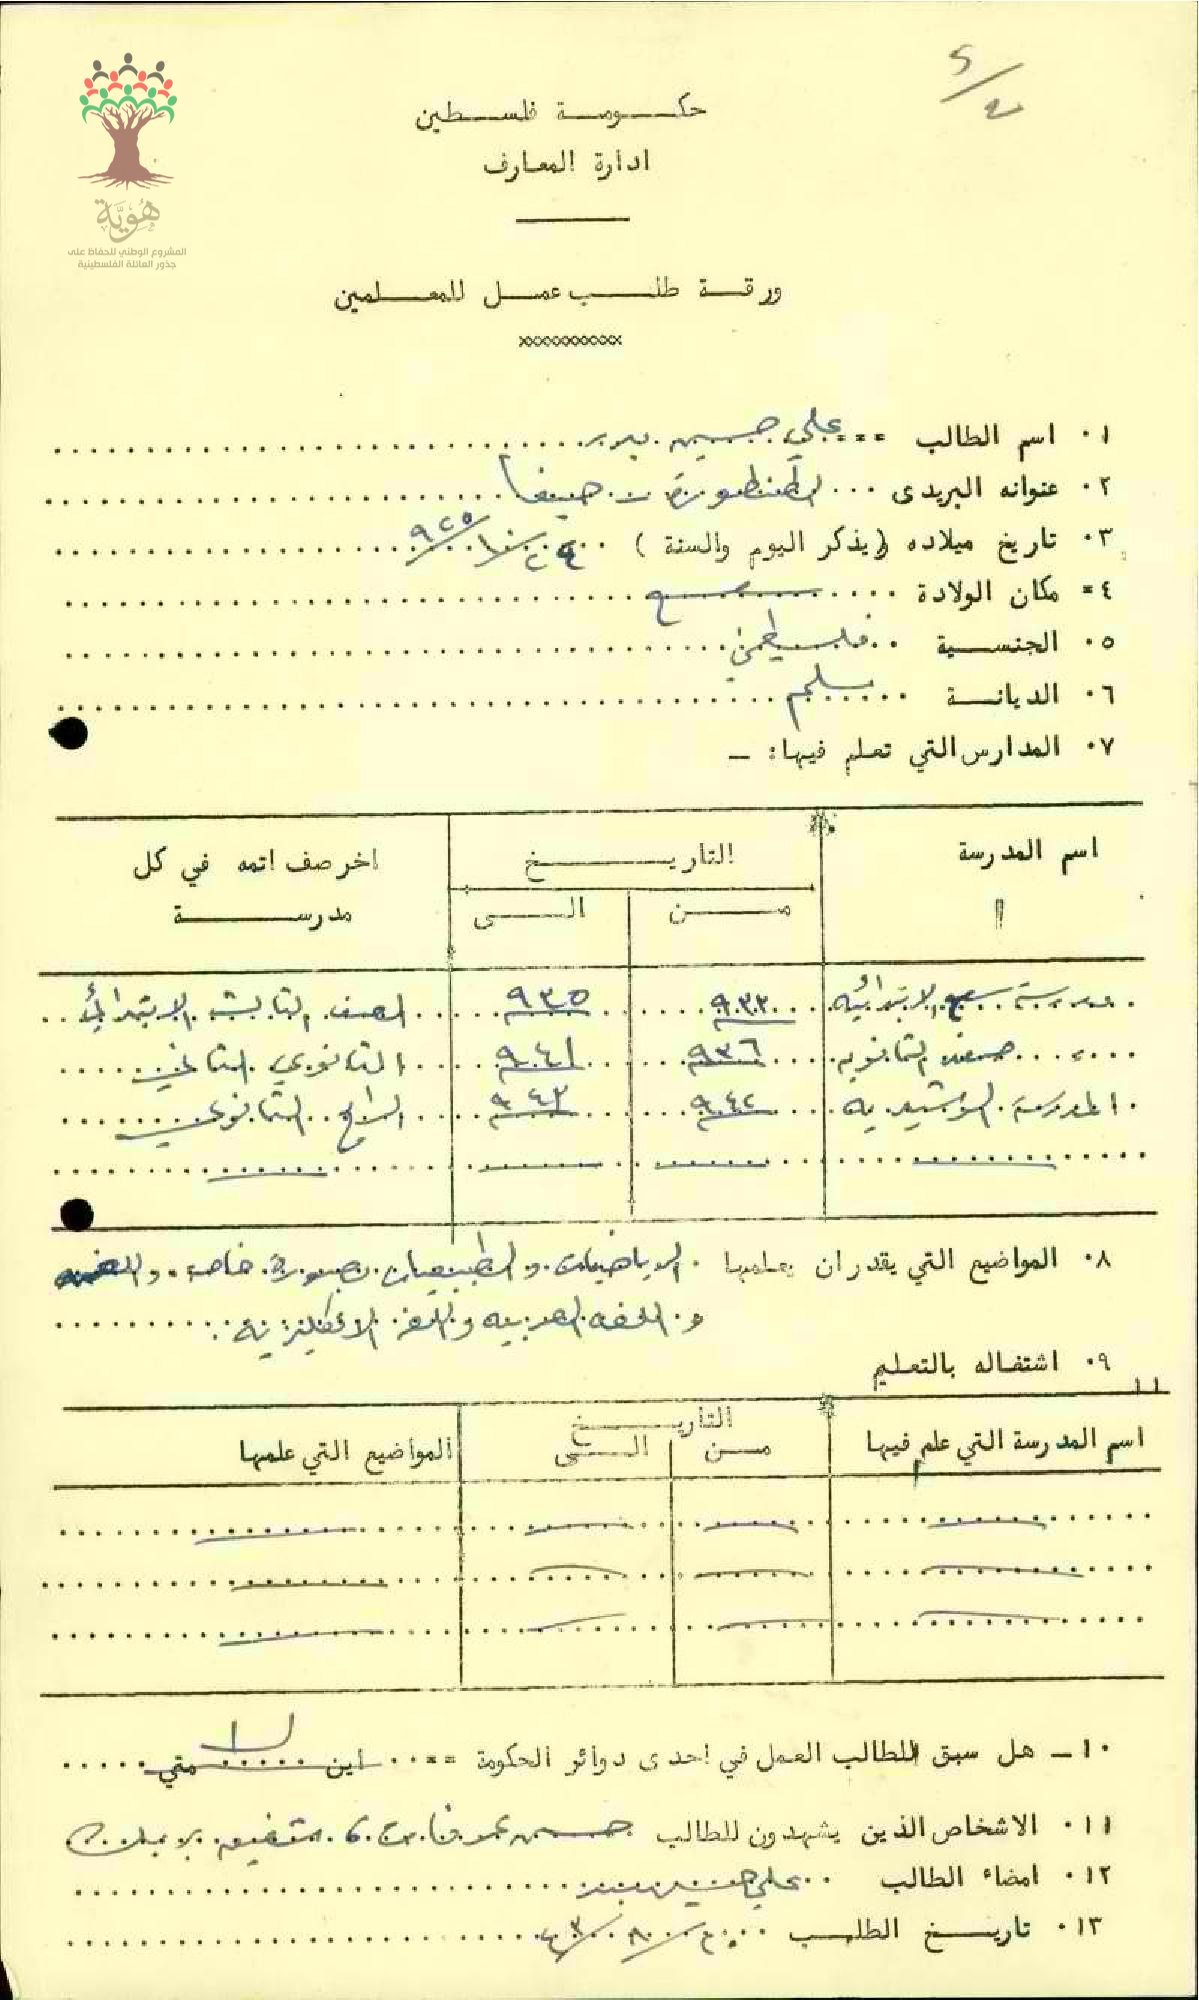 ٢/٤
هُوِيَّة
المشروع الوطني للحفاظ على
جذور العائلة الفلسطينية
حكومة فلسطين
ادارة المعارف
ورقة طلب عمل للمعلمين
xxxxxxxxxxxx
١٠ اسم الطالب == علي حسين بدر
٢٠ عنوانه البريدى ... الطنطورة حيفا
٣٠ تاريخ ميلاده (يذكر اليوم والسنة) ٢٤/١٠/٩٢٥
٤= مكان الولادة
٥٠ الجنسية .. فلسطيني
٦٠ الديانة .. مسلم
٧٠ المدارس التي تعلم فيها: _
اسم المدرسة التاريخ اخر صف اتمه في كل
من الى مدرسة
مدرسة الابتدائيه ٩٣٣ ٩٣٥ الصف الثالث الابتدائي
صفد الثانويه ٩٣٦ ٩٤١ الثانوي الثاني
المدرسة الرشيديه ٩٤٢ ٩٤٣ الرابع الثانوي
٨٠ المواضيع التي يقدر ان يعلمها . الرياضيات والطبيعيات بصورة خاصه
و اللغه العربيه واللغه الانكليزية
٩٠ اشتغاله بالتعليم
اسم المدرسة التي علم فيها التاريخ المواضيع التي علمها
من الى
١٠_ هل سبق للطالب العمل في احدى دوائر الحكومة ==.. اين متي
لا
١١٠ الاشخاص الذين يشهدون للطالب حسن
١٢٠ امضاء الطالب .. علي حسين بدر
١٣٠ تاريخ الطلب